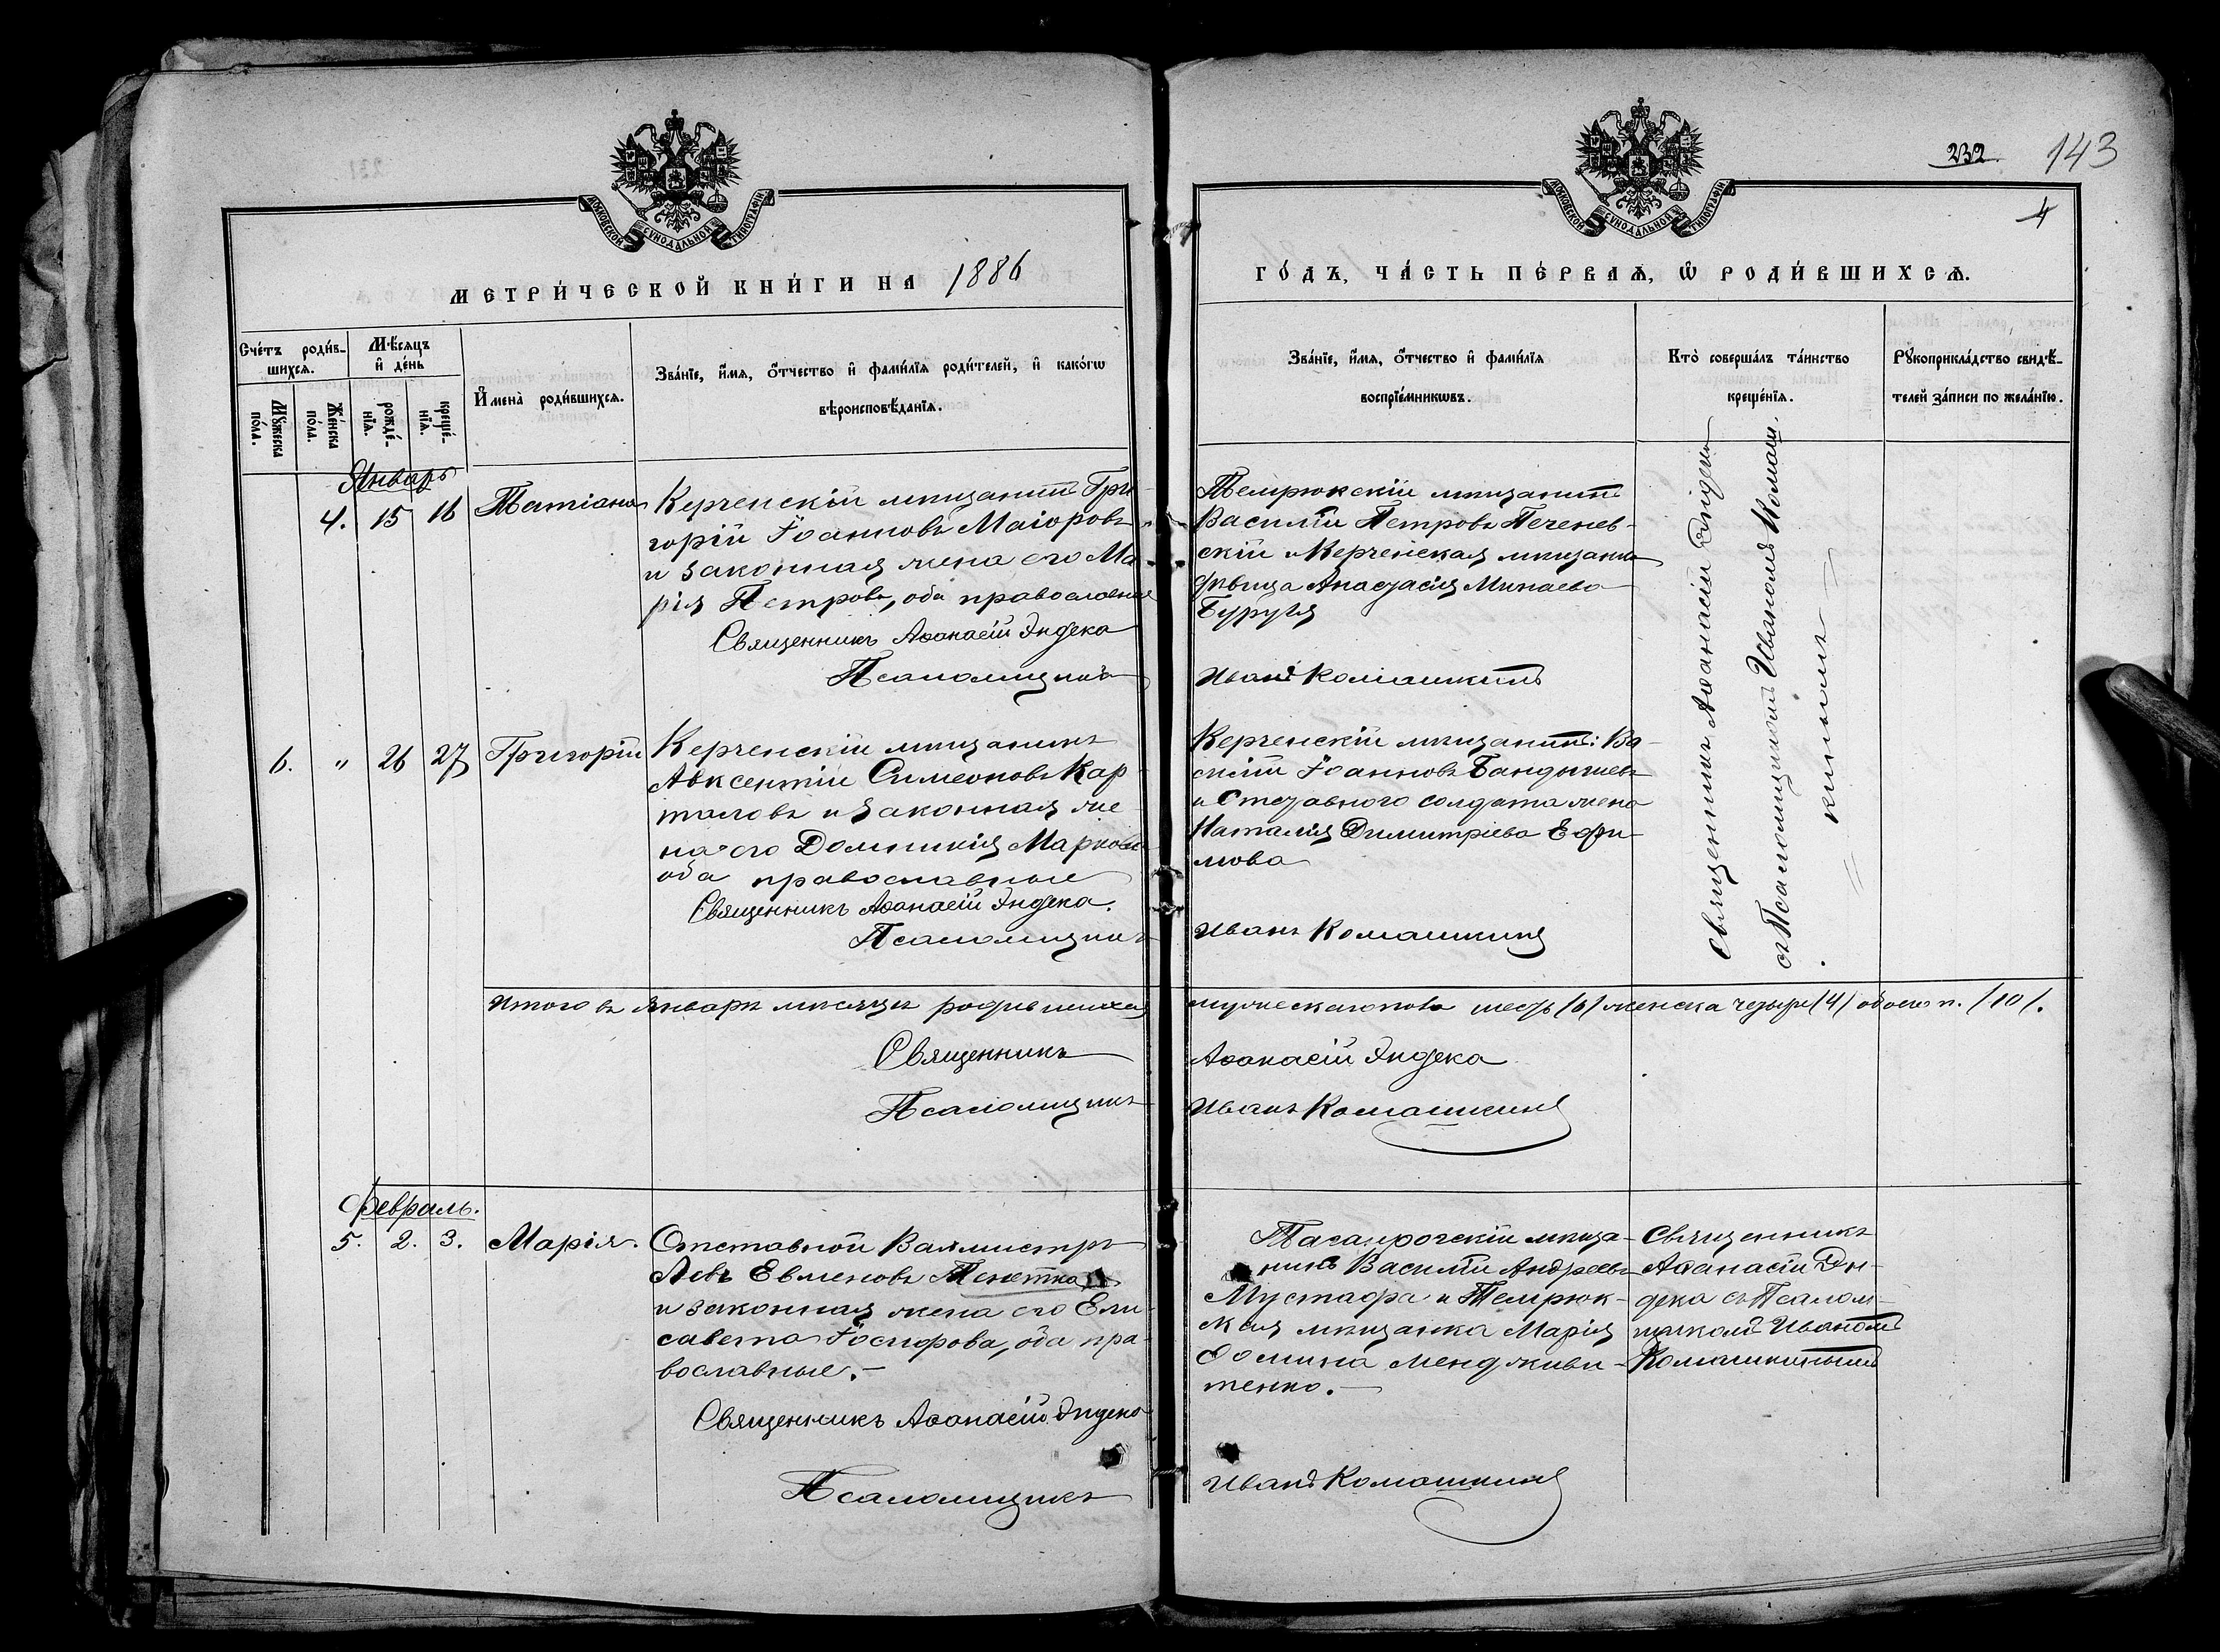 232.
143
4
МОСКОВСКОЙ СѴНОДАЛЬНОЙ ТИПОГРАФІИ
МОСКОВСКОЙ СѴНОДАЛЬНОЙ ТИПОГРАФІИ
МЕТРИ́ЧЕСКОЙ КНИ́ГИ НА 1886
ГО́ДЪ, ЧА́СТЬ ПЕ́РВАѦ, Ѽ РОДИ́ВШИХСѦ.
Сче́тъ роди́в-
шихсѧ.
Мꙋ́жеска
по́ла.
Же́нска
по́ла.
Мѣ́сѧцъ
и҆ де́нь
рожде́-
нїѧ.
креще́-
нїѧ.
И҆мена̀ роди́вшихсѧ.
Зва́нїе, и҆́мѧ, ѻ҆́тчество и҆ фами́лїѧ роди́телей, и҆ како́гѡ
вѣроисповѣ́данїѧ.
Зва́нїе, и҆́мѧ, ѻ҆́тчество и҆ фами́лїѧ
воспрїе́мникѡвъ.
Кто̀ соверша́лъ та́инство
креще́нїѧ.
Рꙋкоприкла́дство свидѣ́-
телей за́писи по жела́нїю.
Январь
4. 15 16 Татіана
Керченскій мѣщанинъ Гри-
горій Іоанновъ Маіоровъ
и законная жена его Ма-
рія Петрова, оба православные
Священникъ Аѳанасій Эндека
Псаломщикъ
Темрюкскій мѣщанинъ
Василій Петровъ Печенев-
скій и Керченская мѣщанка
дѣвица Анастасія Минаева
Буруля
Иванъ Комашкинъ
Священникъ Аѳанасій Эндека
съ Псаломщикомъ Иваномъ Комаш-
кинымъ
6. " 26 27 Григорій
Керченскій мѣщанинъ
Авксентій Симеоновъ Кар-
таловъ и законная же-
на его Домникія Маркова
оба православные
Священникъ Аѳанасій Эндека.
Псаломщикъ
Керченскій мѣщанинъ: Ва-
силій Іоанновъ Бандышевъ
и Отставного солдата жена
Наталія Димитріева Ефи-
мова
Иванъ Комашкинъ
Итого въ Январѣ мѣсяцѣ родившихся мужескаго пола шесть /6/ женска четыре /4/ обоего п. /10/.
Священникъ Аѳанасій Эндека
Псаломщикъ Иванъ Комашкинъ
Февраль.
5. 2. 3. Марія.
Отставной Вахмистръ
Левъ Евменовъ Тенетка
и законная жена его Ели-
савета Іосифова, оба пра-
вославные.-
Священникъ Аѳанасій Эндека
Псаломщикъ
Таганрогскій мѣща-
нинъ Василій Андреевъ
Мустафа и Темрюк-
ская мѣщанка Марія
Ѳомина Мендживи-
тенко.-
Иванъ Комашкинъ
Священникъ
Аѳанасій Эн-
дека съ Псалом-
щикомъ Иваномъ
Комашкинымъ